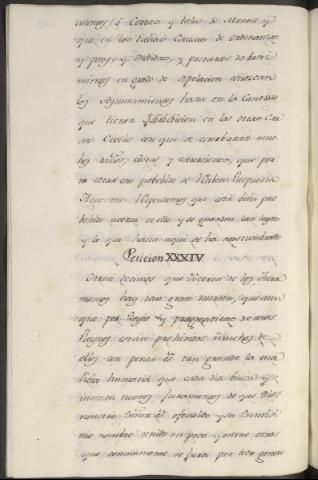 menos, ò Cortar, y talas de Montes y
que en las dichas Causas de ordenanzas
y pesos, y medidas, y posturas de basti
mientos en grado de apelacion conozcan
los Ayuntamientos hasta en la Cantidad
que tienen Jurisdicion en las otras Cau
sas Civiles con que se escusaran mu
chos daños, costas y
no estar en provehido se
A esto vos Respondemos que está bien pro
behido acerca de ello y se guarden las leyes
y lo que hasta aqui se ha acostumbrado
Peticion XXXIV
Otrosi decimos que acerca de los Jura
mentos hay tan gran
que por Leyes y pragmaticas de estos
Reynos están prohividos muchos de
ellos con penas es tan grande la ma
licia humana que cada dia busca y
inventa nuevos Juramentos de que Dios
nuestro Señor es ofendido y su Santisi
mo nombre tenido en poco y entre otros
que comunmente se Jura por todo genero